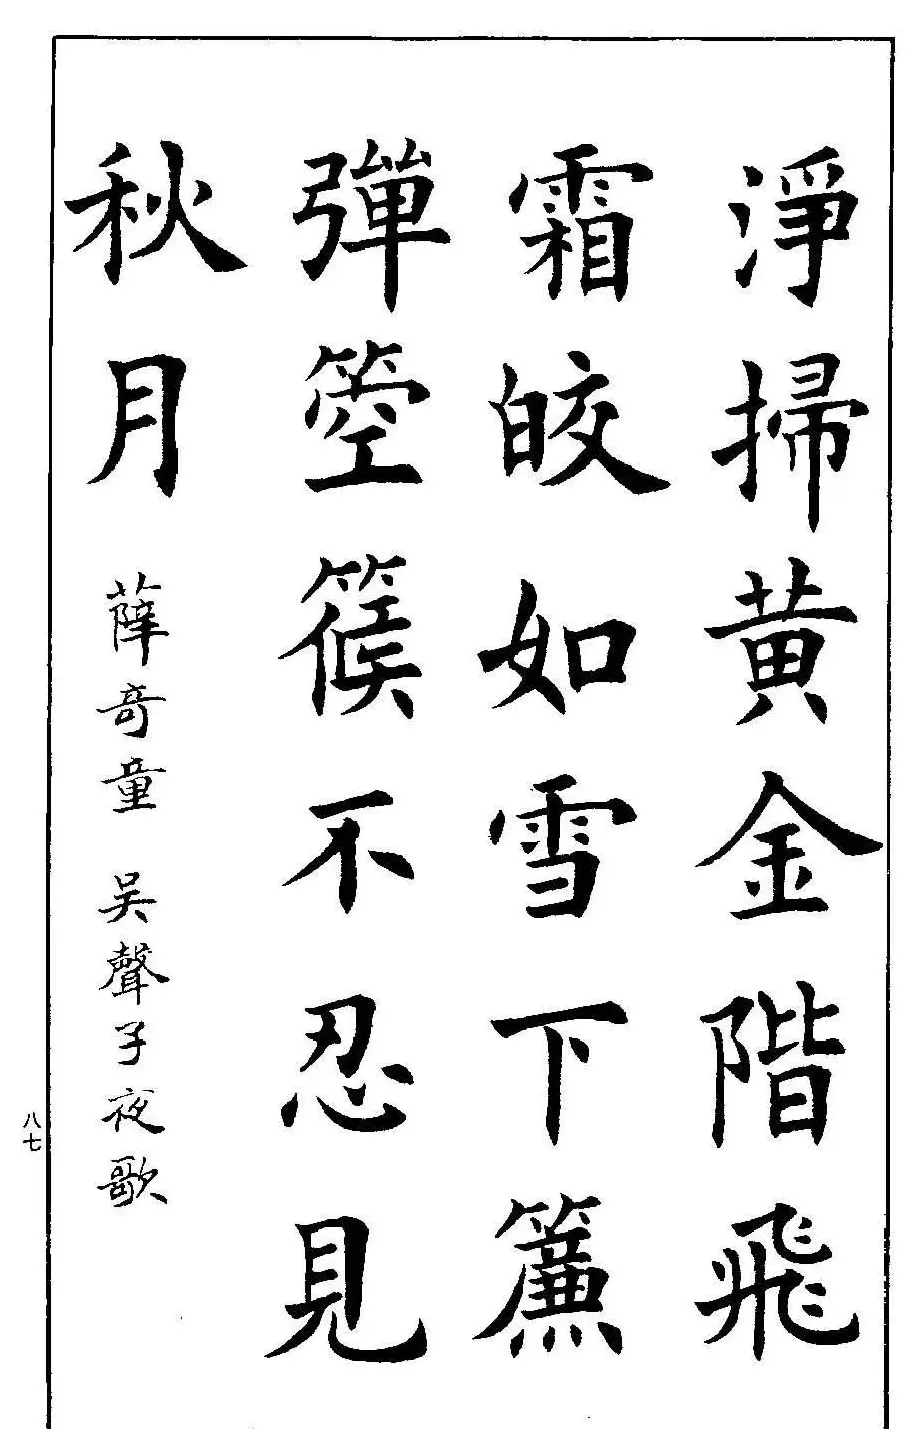 淨掃黄金階飛
霜皎如雪下簾
彈箜篌不忍見
秋月
薛奇童 吴聲子夜歌
八七